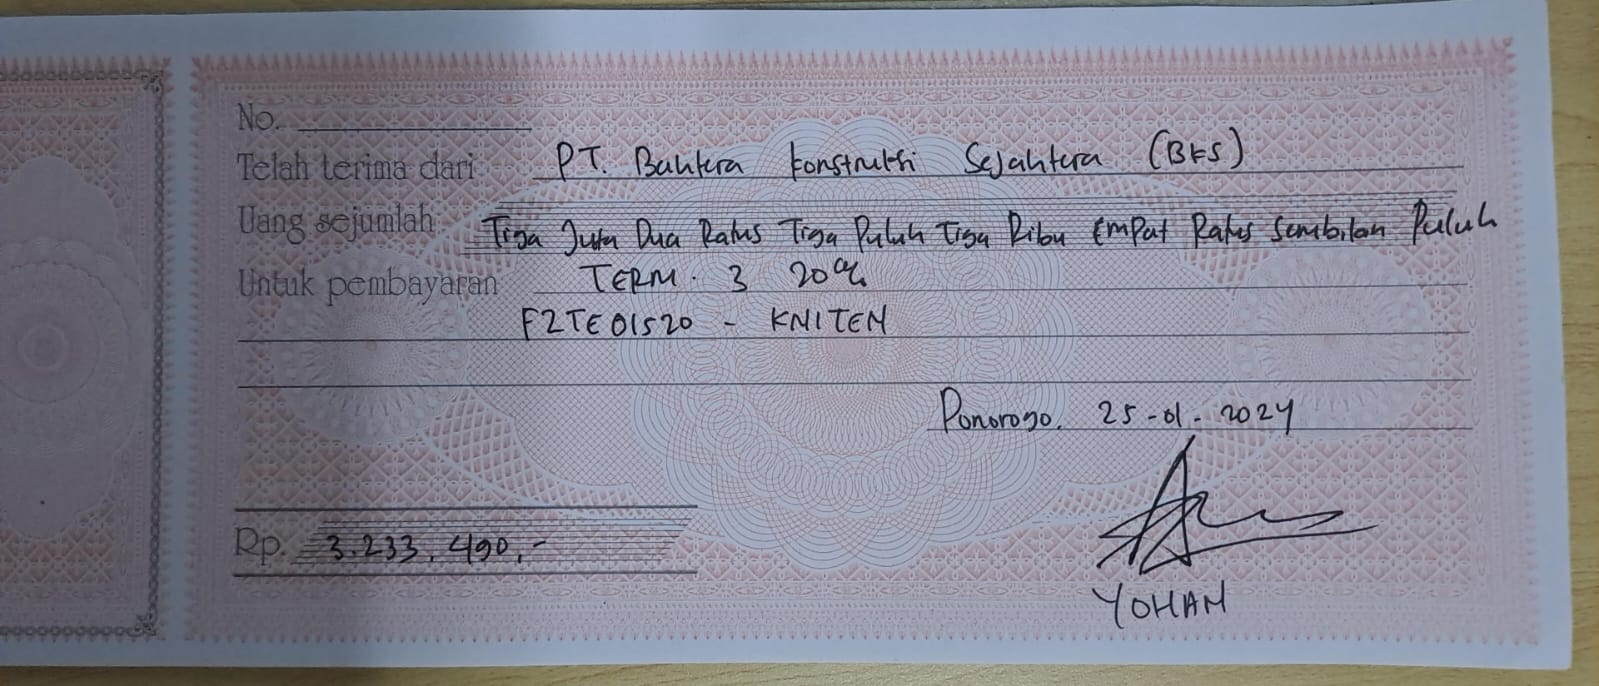 No.
Telah terima dari PT. Bahtera Konstruksi Sejahtera (BKS)
Uang sejumlah Tiga Juta Dua Ratus Tiga Puluh Tiga Ribu Empat Ratus Sembilan Puluh
Untuk pembayaran TERM. 3 20%
F2TE01520 - KNITEN
Ponorogo, 25-01-2024
Rp. 3.233.490,-
YOHAN